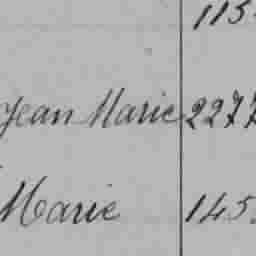 115
Jean Marie 2277
Marie 145